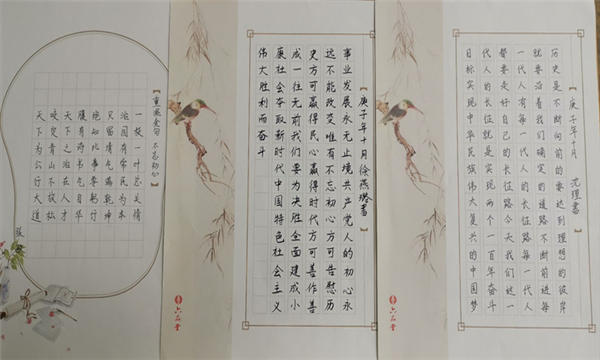 【重要金句 不忘初心】
一枝一叶总关情
治国有常民为本
只留清气满乾坤
绝知此事要躬行
腹有诗书气自华
天下之治在人才
咬定青山不放松
天下为公行大道
张
【庚子年十月徐燕璐书】
事业发展永无止境共产党人的初心永
远不能改变唯有不忘初心方可告慰历
史方可赢得民心赢得时代方可善作善
成一往无前我们要为决胜全面建成小
康社会夺取新时代中国特色社会主义
伟大胜利而奋斗
六品堂
【庚子年十月 理书】
历史是不断向前的要达到理想的彼岸
就要沿着我们确定的道路不断前进每
一代人有每一代人的长征路每一代人
都要走好自己的长征路今天我们这一
代人的长征就是实现两个一百年奋斗
目标实现中华民族伟大复兴的中国梦
六品堂